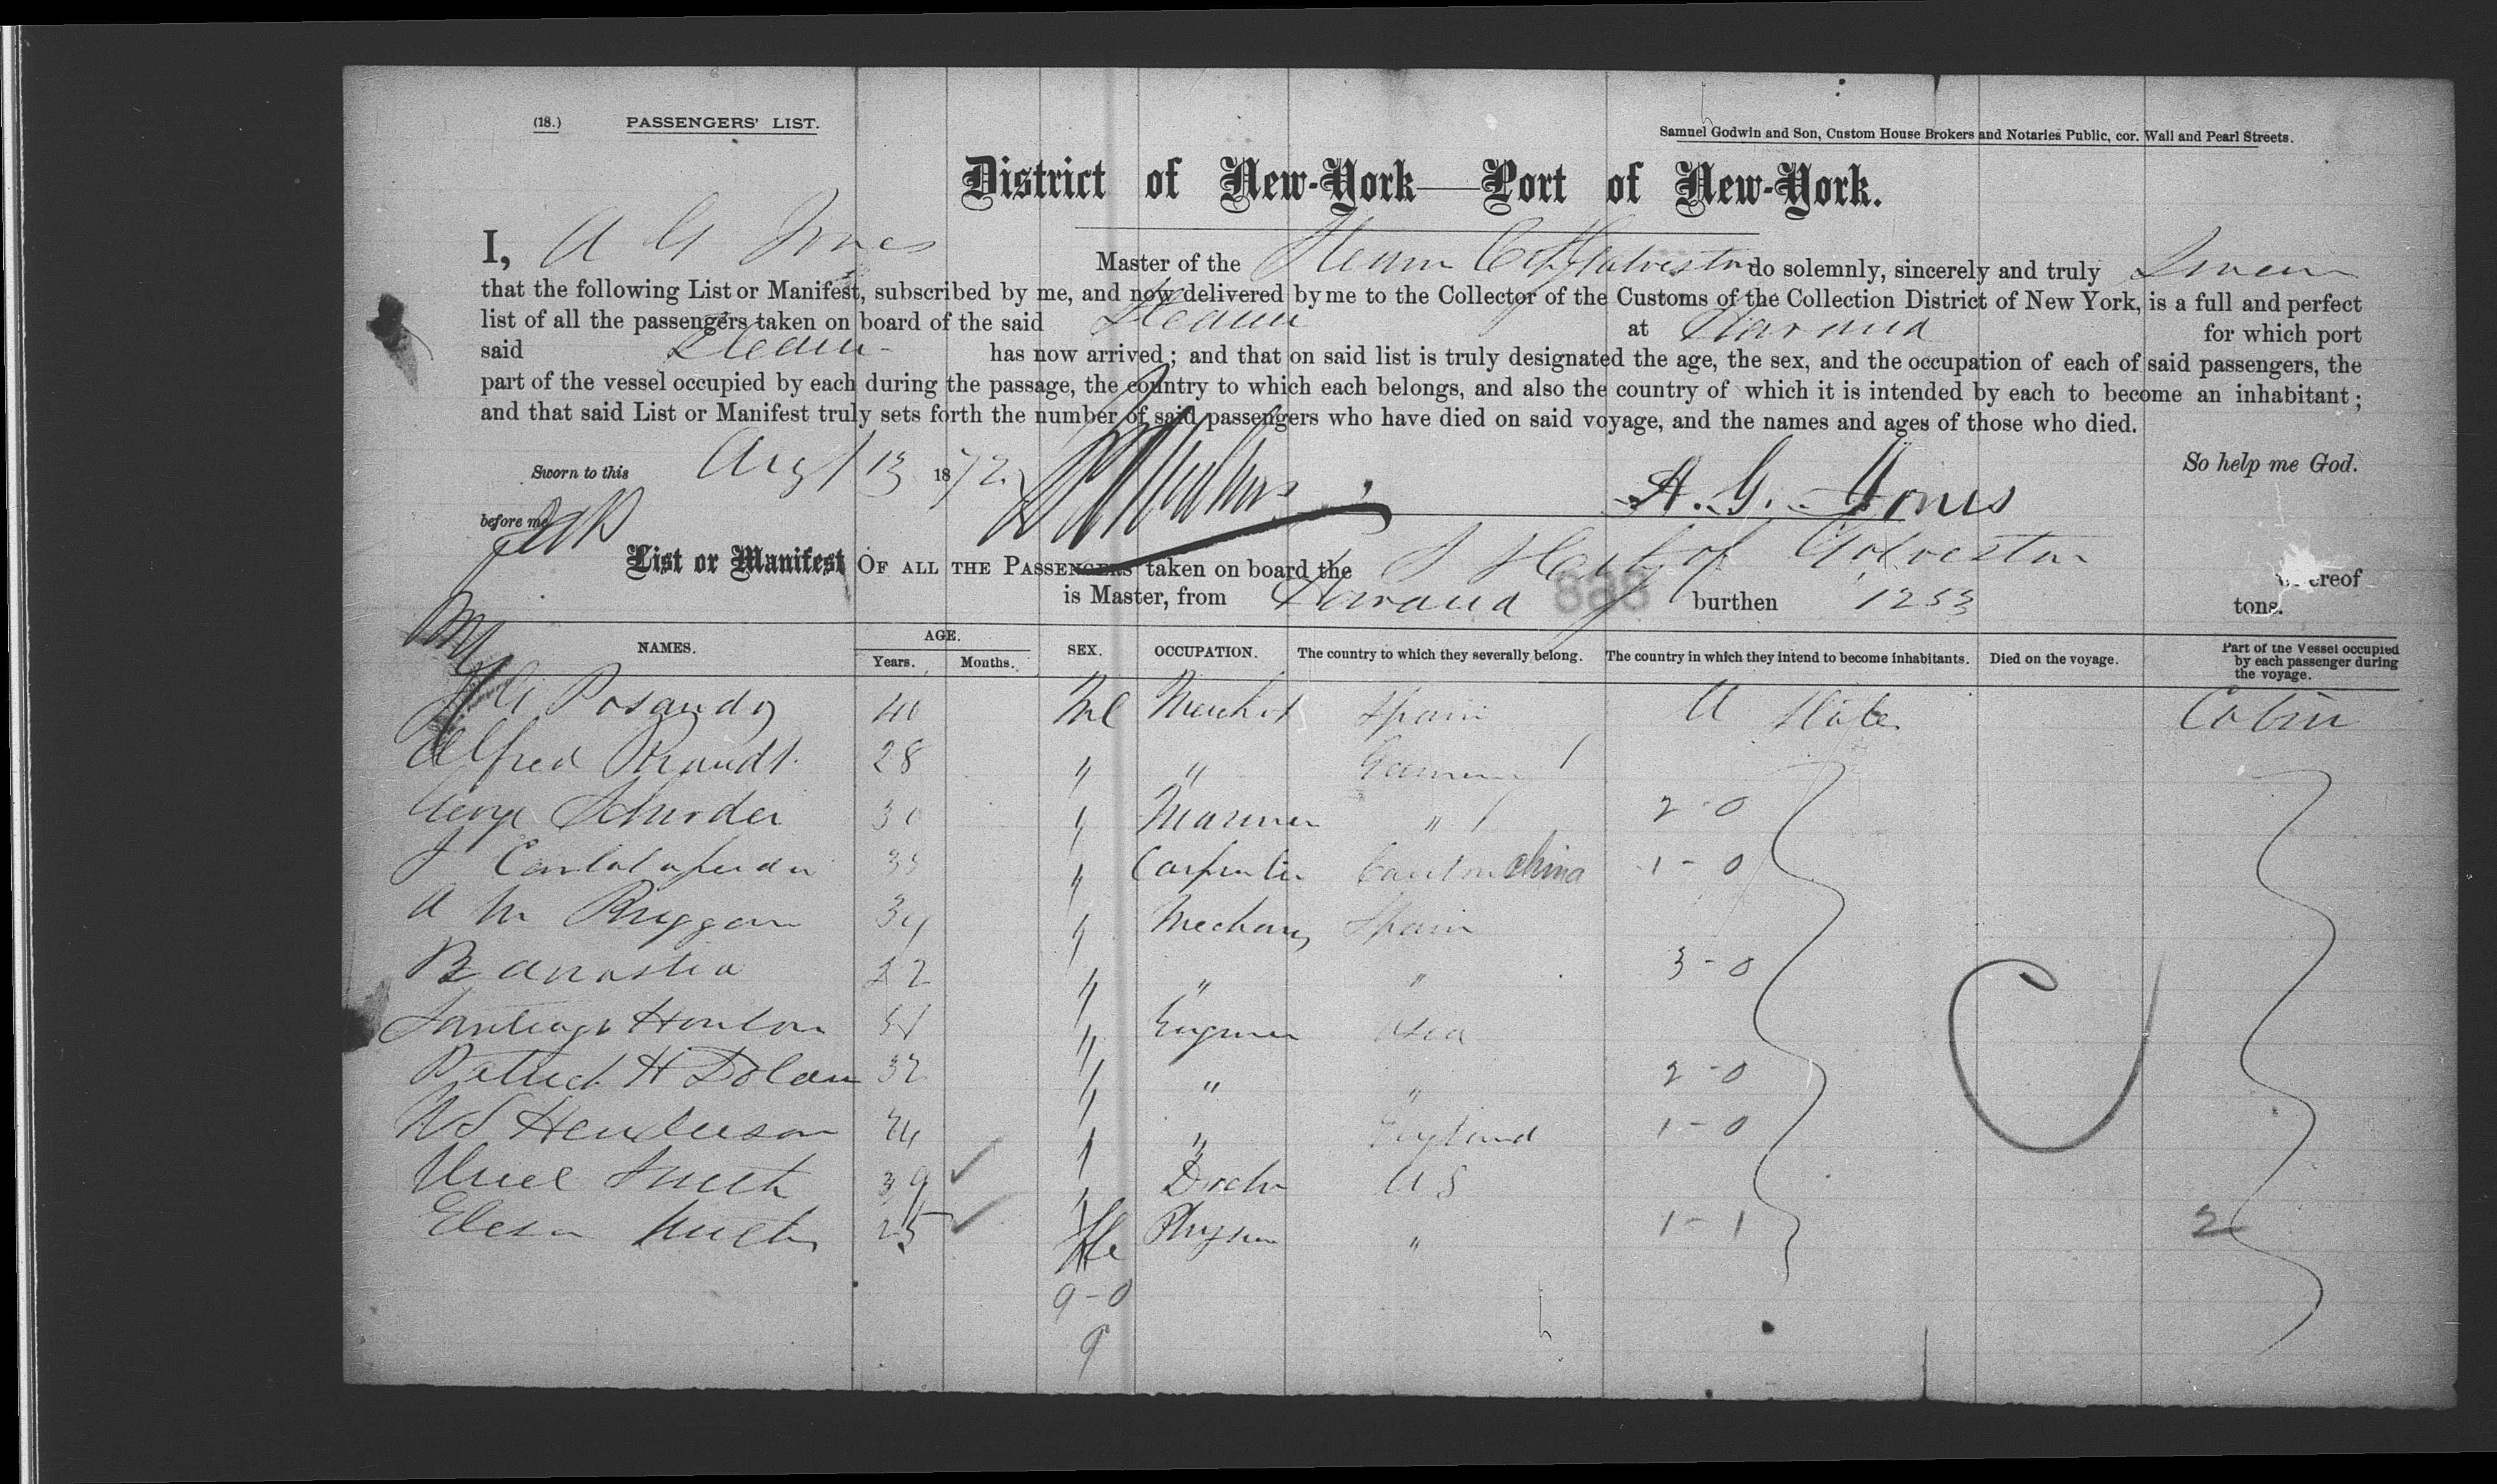 (18.) PASSENGERS' LIST.
Samuel Godwin and Son, Custom House Brokers and Notaries Public, cor. Wall and Pearl Streets.
District of New-York—Port of New-York.
I, A G Jones Master of the Steam City Galveston do solemnly, sincerely and truly Swear
that the following List or Manifest, subscribed by me, and now delivered by me to the Collector of the Customs of the Collection District of New York, is a full and perfect
list of all the passengers taken on board of the said Steam at Havana for which port
said Steam has now arrived; and that on said list is truly designated the age, the sex, and the occupation of each of said passengers, the
part of the vessel occupied by each during the passage, the country to which each belongs, and also the country of which it is intended by each to become an inhabitant;
and that said List or Manifest truly sets forth the number of said passengers who have died on said voyage, and the names and ages of those who died.
Sworn to this Augt 13 1872 So help me God.
before me A. G. Jones
List or Manifest OF ALL THE PASSENGERS taken on board the S S City of Galveston whereof
is Master, from Havana 888 burthen 1253 tons.
NAMES. AGE. Years. Months. SEX. OCCUPATION. The country to which they severally belong. The country in which they intend to become inhabitants. Died on the voyage. Part of the Vessel occupied by each passenger during the voyage.
40 Ml Mercht Spain U States Cabin
Alfred Brandt 28 " " Germany
George Schroder 30 " Mariner " 2-0
J 35 " Carpenter Canton China 1-0
A M 34 " Mechanic Spain
B 22 " " " 3-0
Santiago " Engineer
Patrick H Dolan 32 " " " 2-0
W S Henderson 24 " " England 1-0
Uriel Smith 39 " Doctor U S
Smith 25 Fe Physician " 1-1 2
9-0
9